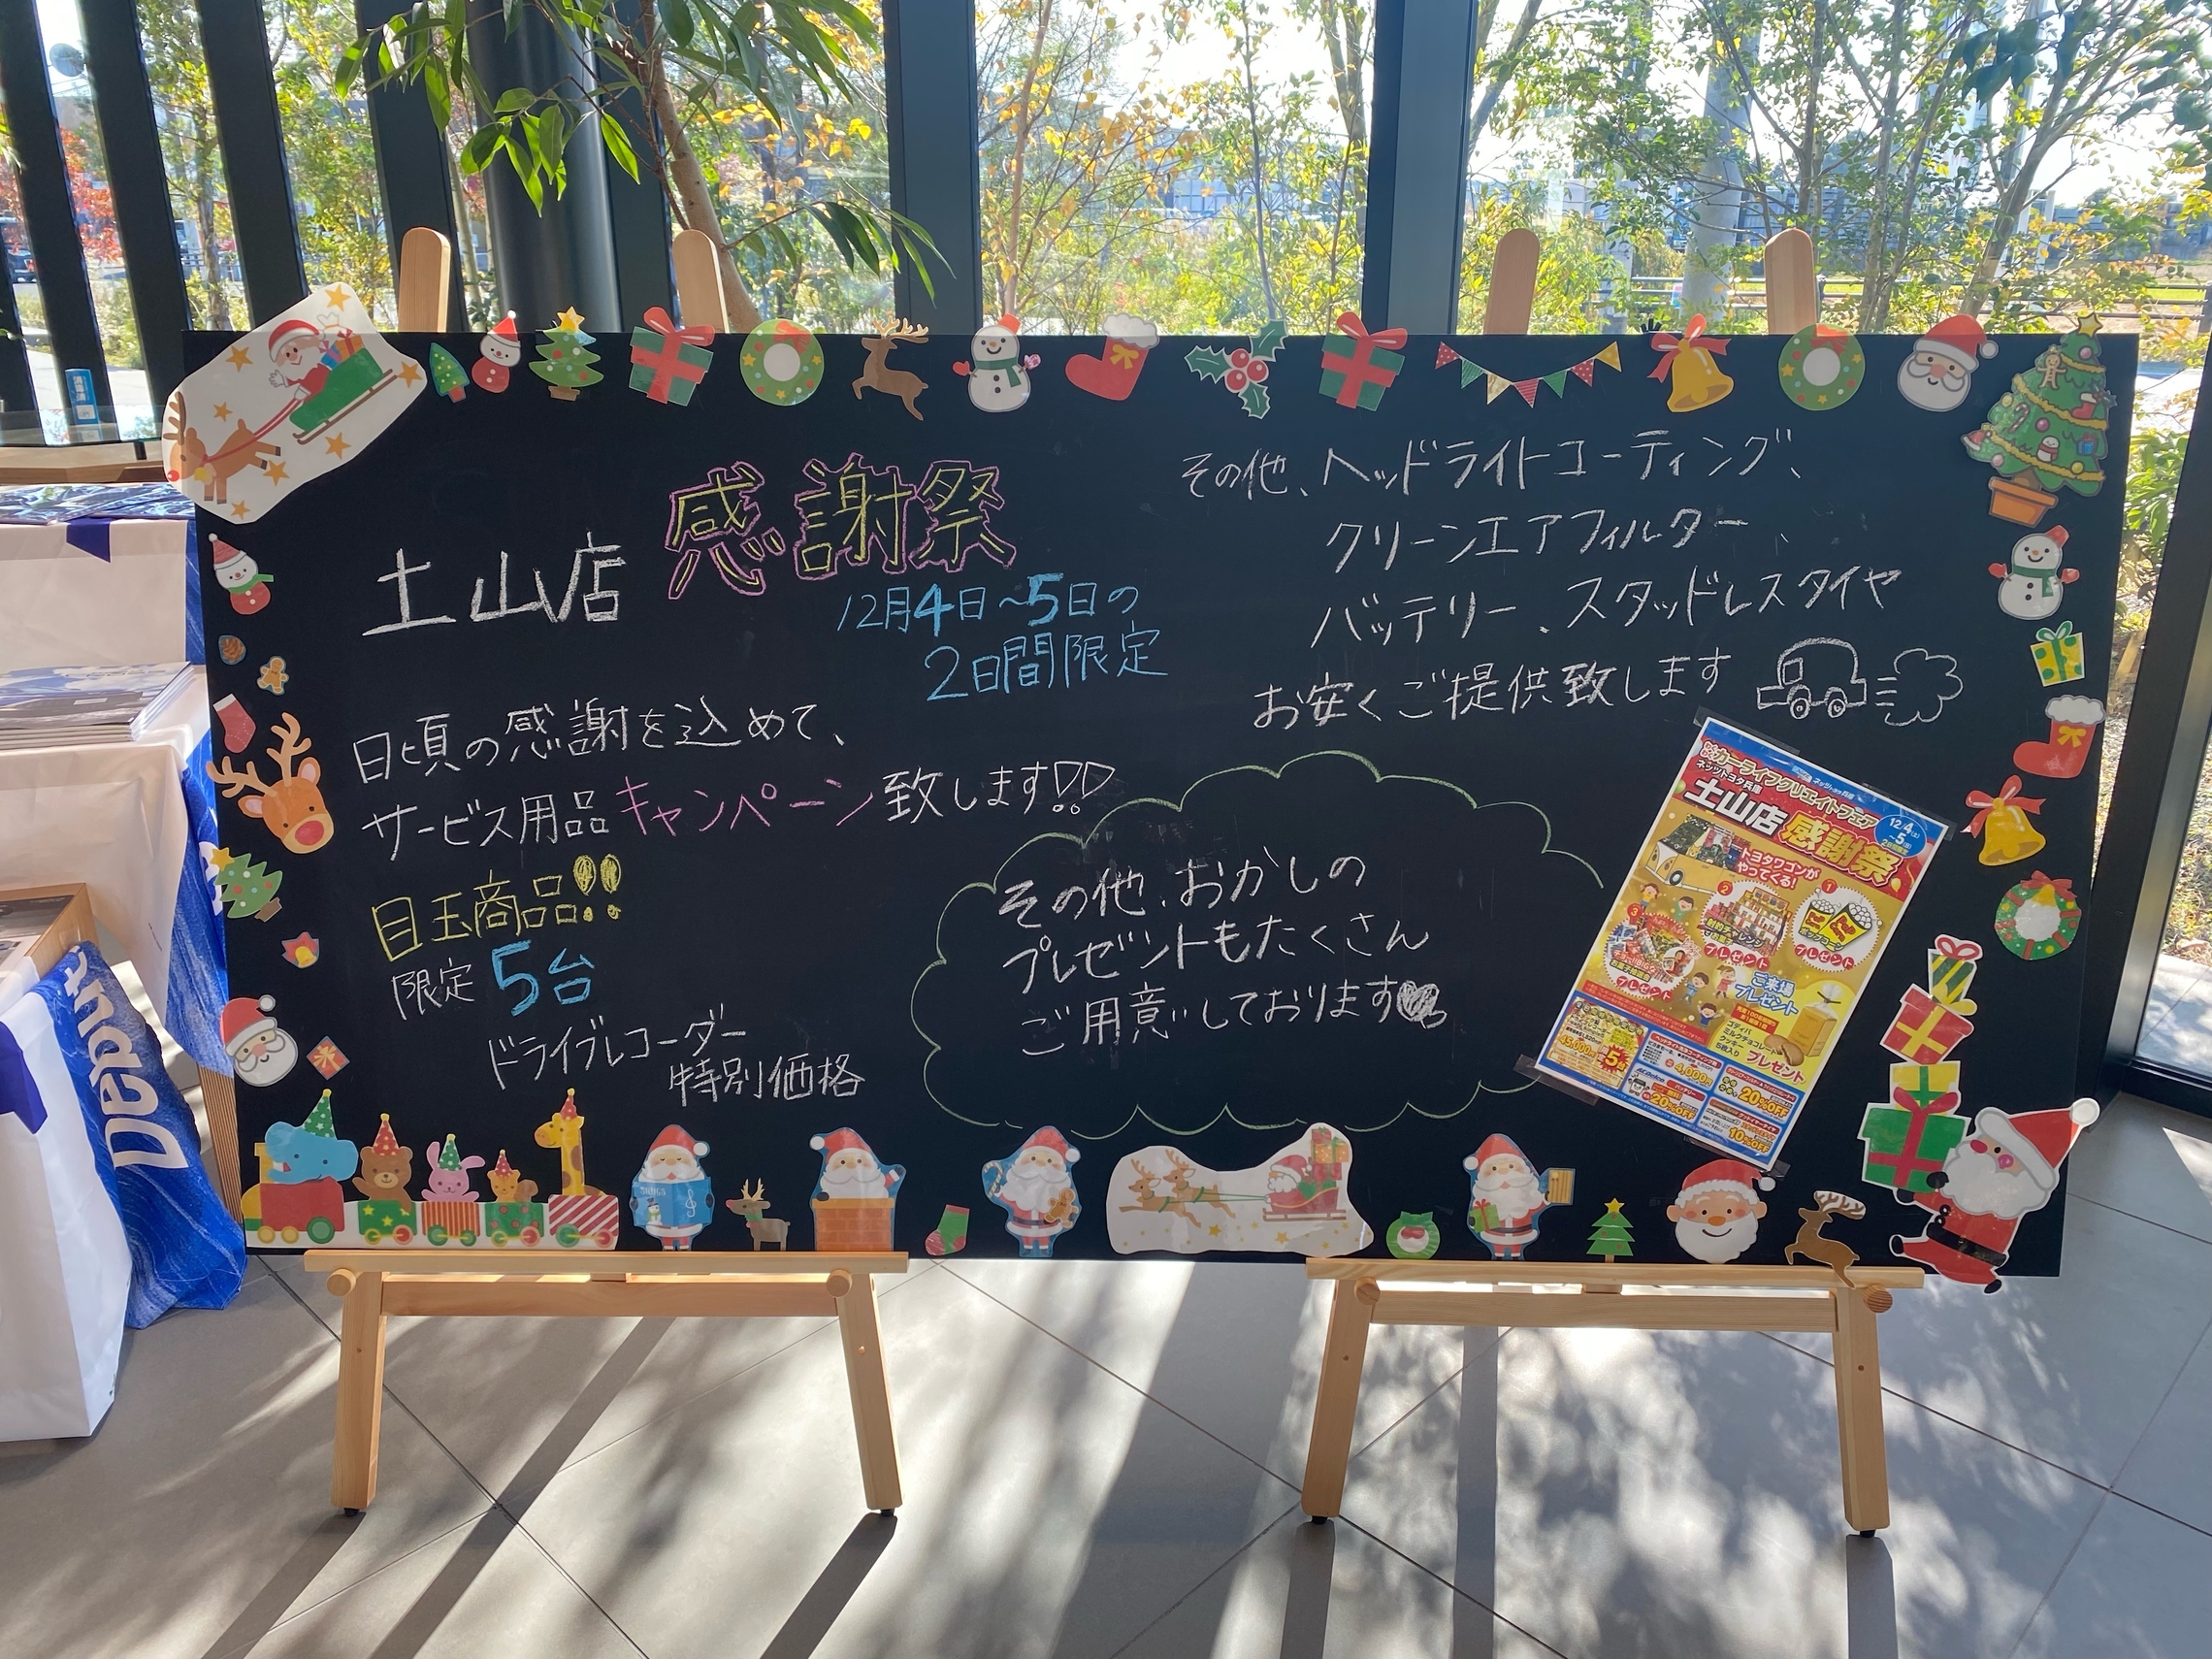 土山店 感謝祭
12月4日～5日の
2日間限定
日頃の感謝を込めて、
サービス用品キャンペーン致します!!
目玉商品!!
限定5台
ドライブレコーダー
特別価格
その他、ヘッドライトコーティング、
クリーンエアフィルター、
バッテリー、スタッドレスタイヤ
お安くご提供致します
その他、おかしの
プレゼントもたくさん
ご用意しております
カーライフクリエイトフェア
ネッツトヨタ兵庫
土山店 感謝祭
12/4(土)
~5(日)
2日間限定
トヨタワゴンが
やってくる!
1
プレゼント
2
プレゼント
3
プレゼント
ご来場
プレゼント
ゴディバ
ミルクチョコレート
クッキー
5枚入り プレゼント
45,000円
5台
4,000円
ACDelco
20%OFF
20%OFF
10%OFF